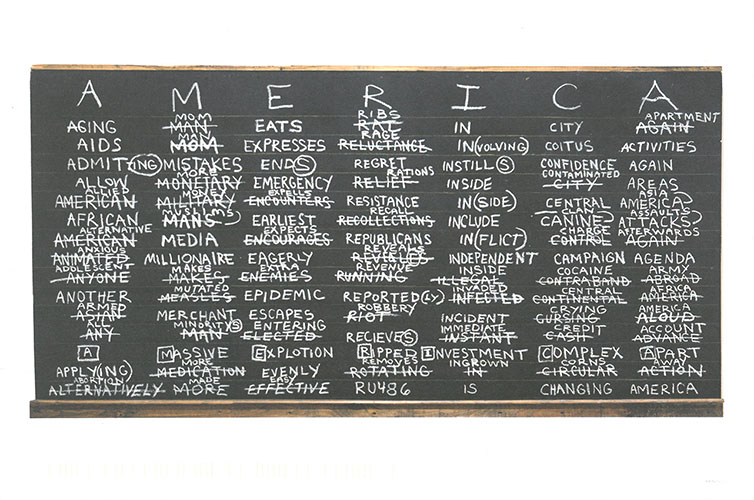 A M E R I C A
MOM RIBS APARTMENT
AGING MAN EATS RAT IN CITY AGAIN
RAGE
AIDS MOM EXPRESSES RELUCTANCE IN(VOLVING) COITUS ACTIVITIES
ADMIT(ING) MISTAKES END(S) REGRET INSTILL(S) CONFIDENCE AGAIN
MORE RATIONS CONTAMINATED
ALLOW MONETARY EMERGENCY RELIEF INSIDE CITY AREAS
ALLIED MONEY EXPELLS ASIA
AMERICAN MILITARY ENCOUNTERS RESISTANCE IN(SIDE) CENTRAL AMERICA
MUSLIMS RECALL ASSAULT
AFRICAN MANS EARLIEST RECOLLECTIONS INCLUDE CANINE ATTACKS
ALTERNATIVE EXPECTS CHARGE AFTERWARDS
AMERICAN MEDIA ENCOURAGES REPUBLICANS IN(FLICT) CONTROL AGAIN
ANXIOUS REVEALS
ANIMATED MILLIONAIRE EAGERLY REVIEWS INDEPENDENT CAMPAIGN AGENDA
ADOLESCENT MAKES EXTRA REVENUE INSIDE COCAINE ARMY
ANYONE MAKES ENEMIES RUNNING ILLEGAL CONTRABAND ABROAD
MUTATED INVADED CENTRAL AFRICA
ANOTHER MEASLES EPIDEMIC REPORTED(LY) INFECTED CONTINENTAL AMERICA
ARMED ROBBERY CRYING AMERICA
ASIAN MERCHANT ESCAPES RIOT INCIDENT CURSING ALOUD
ALL MINORITY(S) ENTERING IMMEDIATE CREDIT ACCOUNT
ANY MAN ELECTED RECIEVE(S) INSTANT CASH ADVANCE
A MASSIVE EXPLOTION RIPPED INVESTMENT COMPLEX APART
MORE REMOVES INGROWN CORNS AWAY
APPLY(ING) MEDICATION EVENLY ROTATING IN CIRCULAR ACTION
ABORTION MADE EASY
ALTERNATIVELY MORE EFFECTIVE RU486 IS CHANGING AMERICA